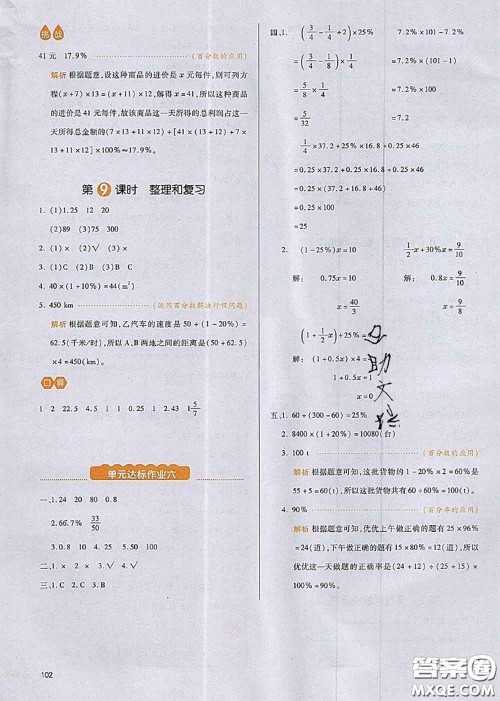 挑战
41元 17.9% (百分数的应用)
解析 根据题意,设这种商品的进价是x元每件,则可列方
程(x+7)×13=(x+11)×12,解得x=41,所以这种商品
的进价是41元每件,故该商品这一天所得的总利润占这一
天所得总金额的(7×13+11×12)÷[41×(13+12)+7×
13+11×12]×100%≈17.9%。
第9课时 整理和复习
1. (1)1.25 12 20
(2)89 75 300
2. (1)× (2)√ (3)×
3. (1)B (2)C (3)C
4. 40×(1+10%)=44(m²)
5. 450 km
解析 根据题意可知,乙汽车的速度是50÷(1-20%)=
62.5(千米/时),所以A、B两地之间的距离是(50+62.5)
×4=450(km)。
口算
1 2 22.5 4 5 1 1 1 5/7
单元达标作业六
一、1.24 20 80 0.8
2.66.7% 33/50
3.0.8 10 4.25 5.40 25
二、1.× 2.× 3.× 4.√
三、1.C 2.A 3.B 4.C
四、1. (3/4-1/4÷2)×25% 7.2%×101-7.2%
=(3/4-1/8)×25% =7.2%×(101-1)
=5/8×1/4 =7.2%×100
=5/32 =7.2
1/4×37.2+25%×16.8+0.25×46
=0.25×37.2+0.25×16.8+0.25×46
=0.25×(37.2+16.8+46)
=0.25×100
=25
2. (1-25%)x=10 1/2x+30%x=9/10
解: 0.75x=10 解: 0.8x=9/10
x=40/3 x=9/8
(1+1/2x)÷25%=4
解: (1+0.5x)×4=4
1+0.5x=1
x=0
五、1. 60÷(300-60)=25%
2. 8400×(1+20%)=10080(台)
3. 100 t (百分数的应用)
解析 根据题意可知,这批货物的1-20%×2=60%是
55+5=60(t),所以这批货物有60÷60%=100(t)。
4. 90% (百分率的应用)
解析 根据题意可知,优优上午做正确的题有25×96%
=24(道),下午做正确的题有15×80%=12(道),所以
优优这一天做题的正确率是(24+12)÷(25+15)×
100%=90%。
102
答案圈
MXQE.COM